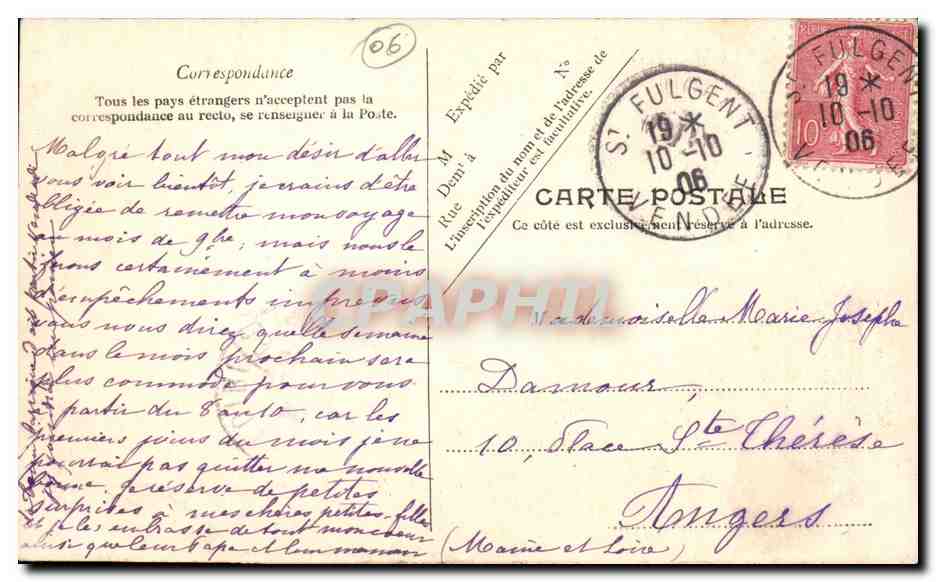 06
Correspondance
Tous les pays étrangers n'acceptent pas la
correspondance au recto, se renseigner à la Poste.
Malgré tout mon désir d'aller
vous voir bientôt, je crains d'être
obligée de remettre mon voyage
au mois de 9bre; mais nous le
ferons certainement à moins
d'empêchements imprévus
vous nous direz quelle semaine
dans le mois prochain sera
plus commode pour vous
à partir du 8 au 10, car les
premiers jours du mois je ne
pourrai pas quitter ma nouvelle
bonne. Je réserve de petites
surprises à mes chères petites-filles
et je les embrasse de tout mon cœur
ainsi que leur papa et leur maman
Expédié par
M
Dem<sup>t</sup> à
Rue
N°
L'inscription du nom et de l'adresse de
l'expéditeur est facultative.
ST FULGENT
19 *
10 -10
06
VENDEE
ST FULGENT
19 *
10 -10
06
VENDEE
10
CARTE POSTALE
Ce côté est exclusivement réservé à l'adresse.
CPAPHIL
Mademoiselle Marie Josepha
Damour,
10, Place Ste Thérèse
Angers
(Maine et Loire)